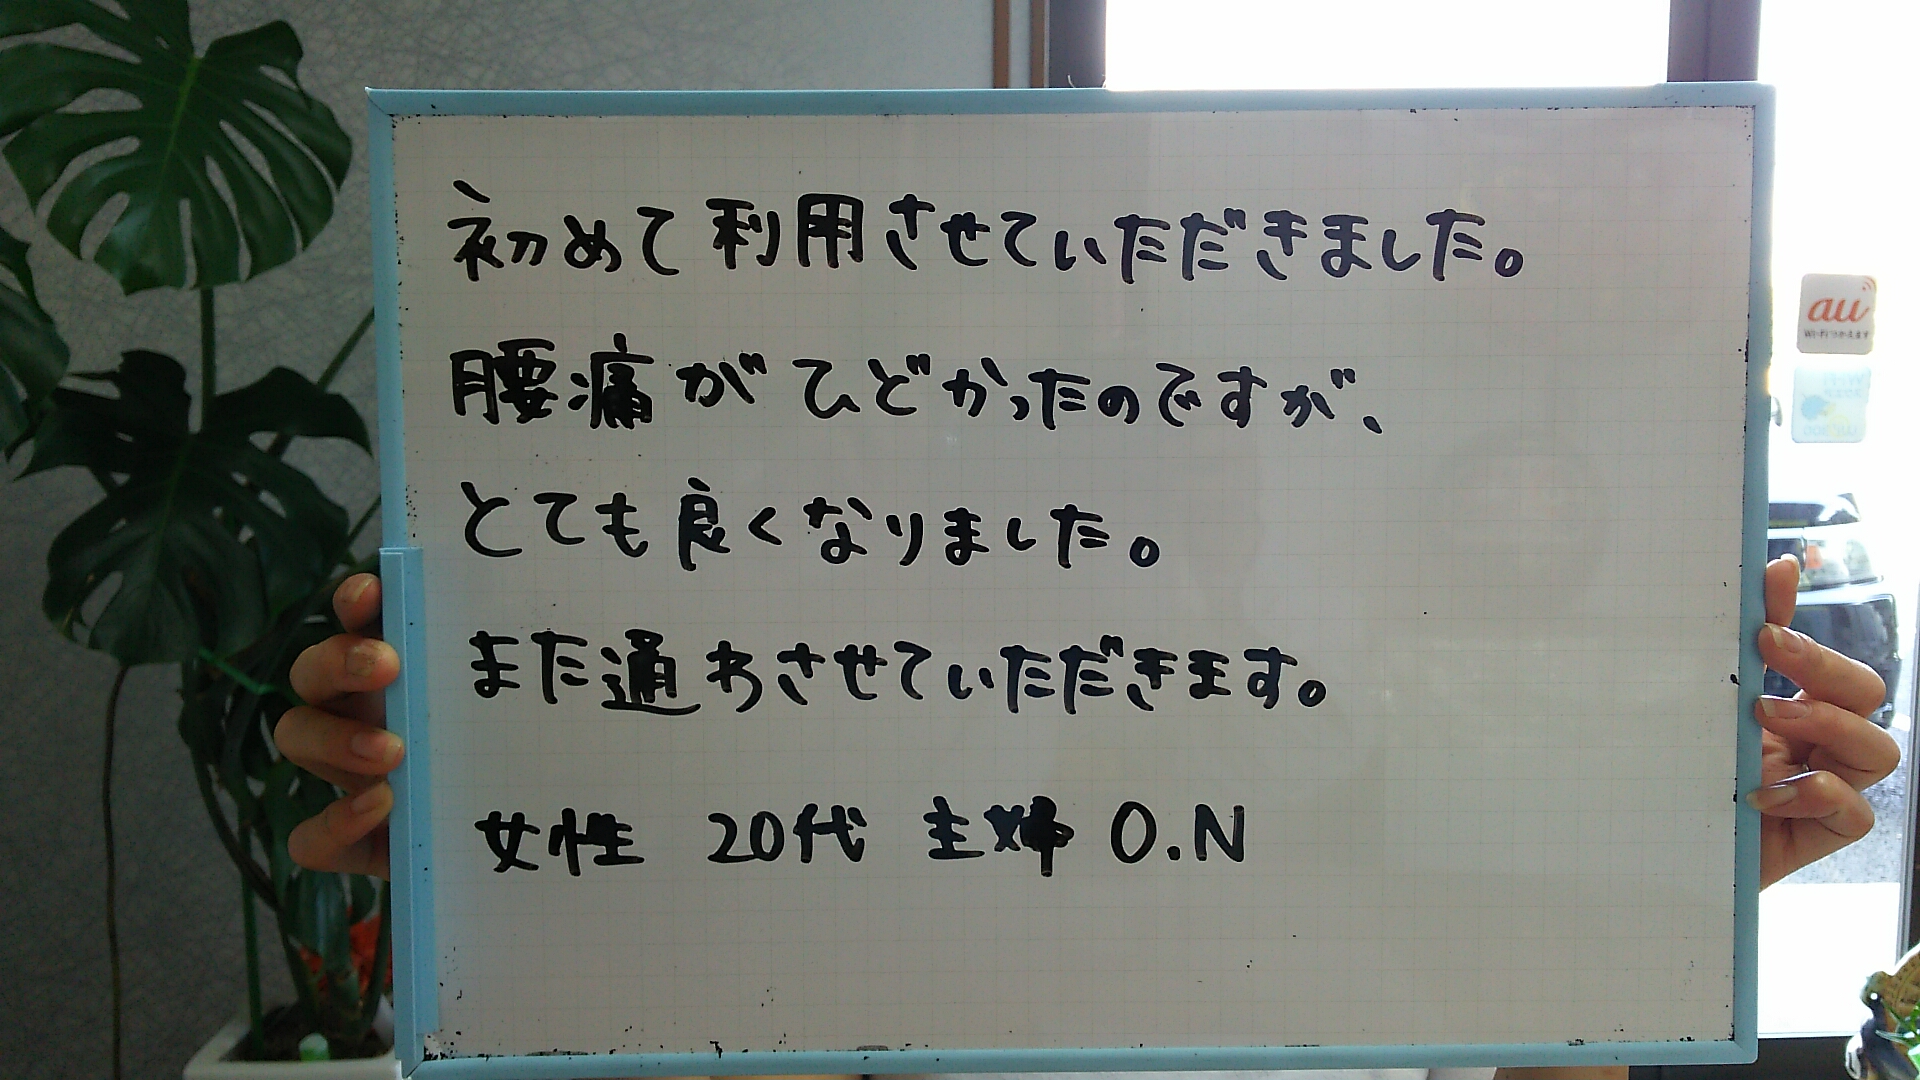 初めて利用させていただきました。
腰痛がひどかったのですが、
とても良くなりました。
また通わさせていただきます。
女性 20代 主婦 O.N
au
Wi-Fiつかえます